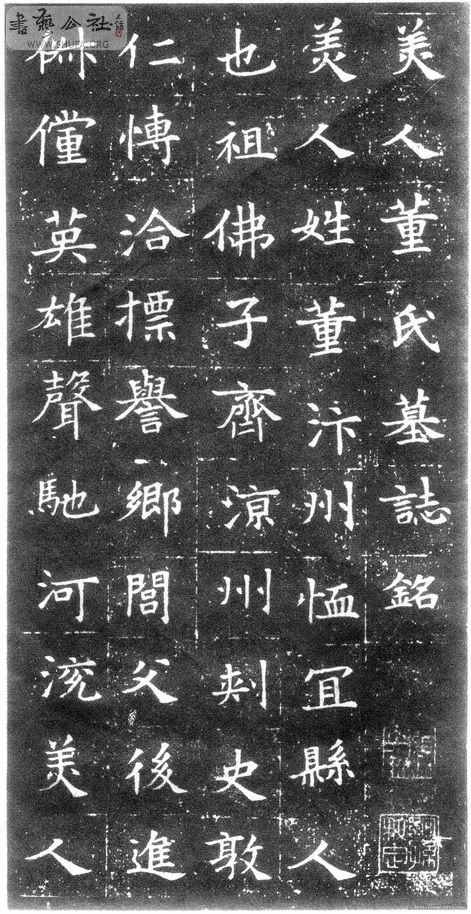 美人董氏墓誌銘
美人姓董汴州恤冝縣人
也祖佛子齊涼州刺史敦
仁博洽標譽鄉閭父後進
俶儻英雄聲馳河沇美人
書藝公社
WWW.SHUFA.ORG